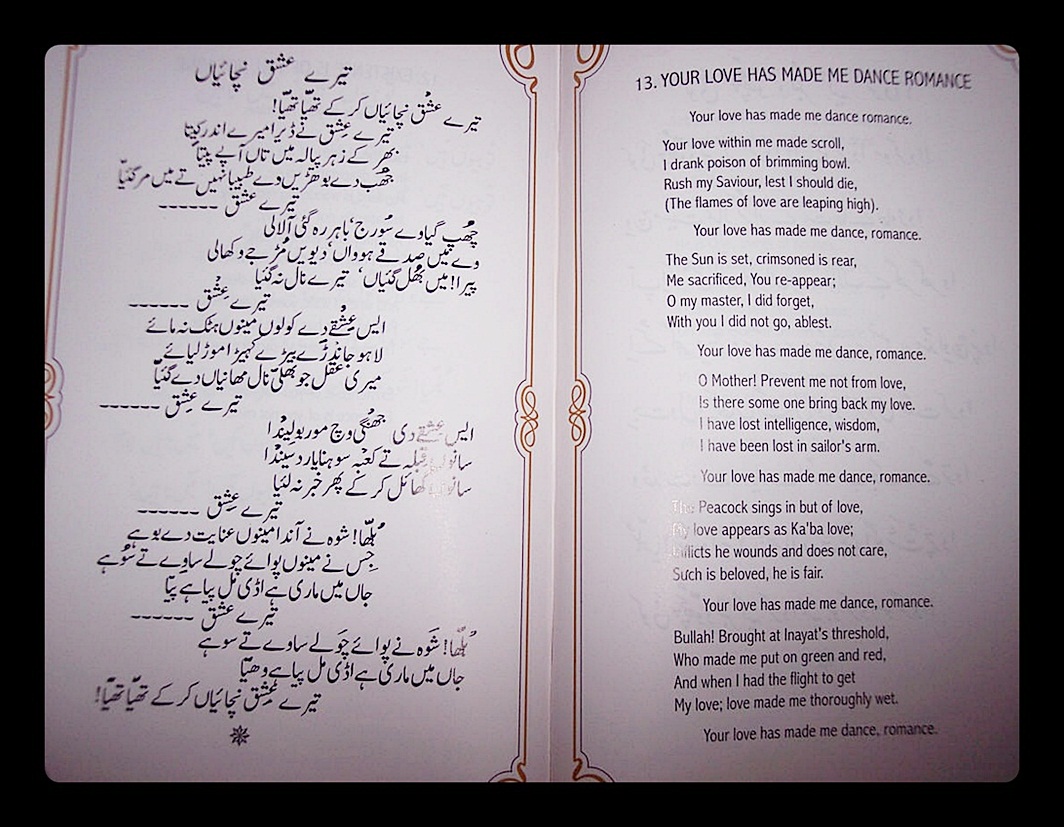 تیرے عشق نچائیاں
تیرے عشق نچائیاں کر کے تھیّا تھیّا!
تیرے عشق نے ڈیرا میرے اندر کیتا
بھر کے زہر پیالہ میں تاں آپے پیتا
جھب دے بوھڑیں وے طبیبا نہیں تے میں مر گئیّا
تیرے عشق ------
چھپ گیا وے سورج، باہر رہ گئی آ لالی
وے میں صدقے ہوواں، دیویں مڑ جے وکھالی
پیرا! میں بھل گئیاں، تیرے نال نہ گئیا
تیرے عشق ------
ایس عشقے دے کولوں مینوں ہٹک نہ مائے
لاہو جاندڑے بیڑے کہیڑا موڑ لیائے
میری عقل جو بھلی نال مھانیاں دے گئیّا
تیرے عشق ------
ایس عشقے دی جھنگی وچ مور بولیندا
سانوں قبلہ تے کعبہ سوہنا یار دسیندا
سانوں گھائل کر کے پھر خبر نہ لئیا
تیرے عشق ------
بُلّھا! شوہ نے آندا مینوں عنایت دے بوہے
جس نے مینوں پوائے چولے ساوے تے سُوہے
جاں میں ماری ہے اڈی مل پیا ہے پیّا
تیرے عشق ------
بُلّھا! شوہ نے پوائے چولے ساوے تے سوہے
جاں میں ماری ہے اڈی مل پیا ہے وھیّا
تیرے عشق نچائیاں کر کے تھیّا تھیّا!
13. YOUR LOVE HAS MADE ME DANCE ROMANCE
Your love has made me dance romance.
Your love within me made scroll,
I drank poison of brimming bowl.
Rush my Saviour, lest I should die,
(The flames of love are leaping high).
Your love has made me dance, romance.
The Sun is set, crimsoned is rear,
Me sacrificed, You re-appear;
O my master, I did forget,
With you I did not go, ablest.
Your love has made me dance, romance.
O Mother! Prevent me not from love,
Is there some one bring back my love.
I have lost intelligence, wisdom,
I have been lost in sailor's arm.
Your love has made me dance, romance.
The Peacock sings in but of love,
My love appears as Ka'ba love;
Inflicts he wounds and does not care,
Such is beloved, he is fair.
Your love has made me dance, romance.
Bullah! Brought at Inayat's threshold,
Who made me put on green and red,
And when I had the flight to get
My love; love made me thoroughly wet.
Your love has made me dance, romance.